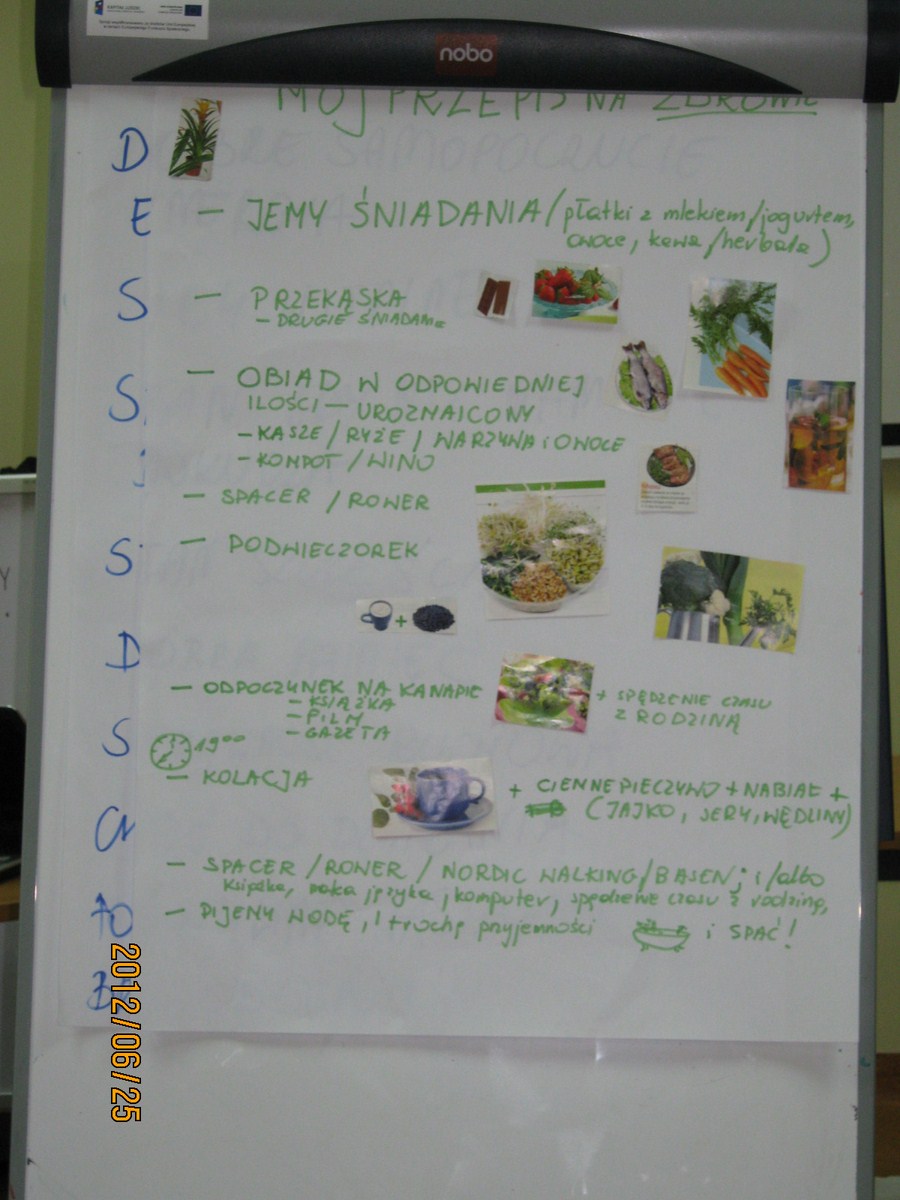 KAPITAŁ LUDZKI
nobo
MÓJ PRZEPIS NA ZDROWIE
D
E - JEMY ŚNIADANIA/(płatki z mlekiem/jogurtem,
owoce, kawa/herbata)
S - PRZEKĄSKA
- DRUGIE ŚNIADANIE
S - OBIAD W ODPOWIEDNIEJ
ILOŚCI - UROZNAICONY
- KASZE/RYŻE/WARZYWA i OWOCE
- KOMPOT/WINO
- SPACER/ROWER
S - PODWIECZOREK
+
D
- ODPOCZYNEK NA KANAPIE + SPĘDZENIE CZASU
- KSIĄŻKA Z RODZINĄ
- FILM
- GAZETA
S 19⁰⁰
- KOLACJA + CIEMNE PIECZYWO + NABIAŁ +
(JAJKO, SERY, WĘDLINY)
- SPACER/ROWER/NORDIC WALKING/BASEN; i/albo
książka, nauka języka, komputer, spędzenie czasu z rodziną,
- PIJEMY WODĘ, i trochę przyjemności i SPAĆ!
2012/06/25